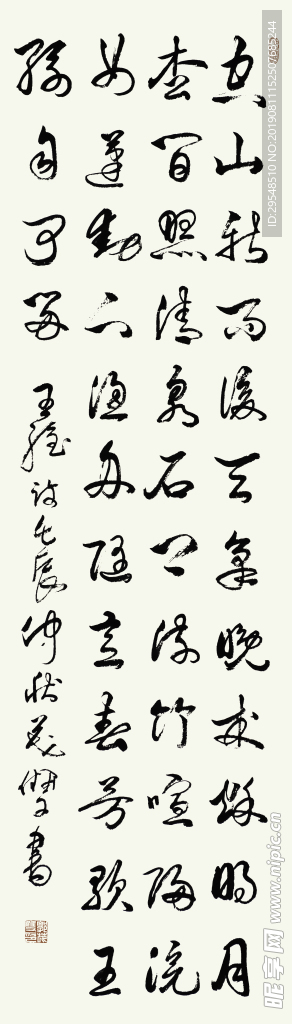 空山新雨後天氣晚来秋明月
松間照清泉石上流竹喧歸浣
女蓮動下漁舟隨意春芳歇王
孫自可留 王維诗壬辰仲秋書
ID:29548510 NO:20190811152507685244
昵享网 www.nipic.cn